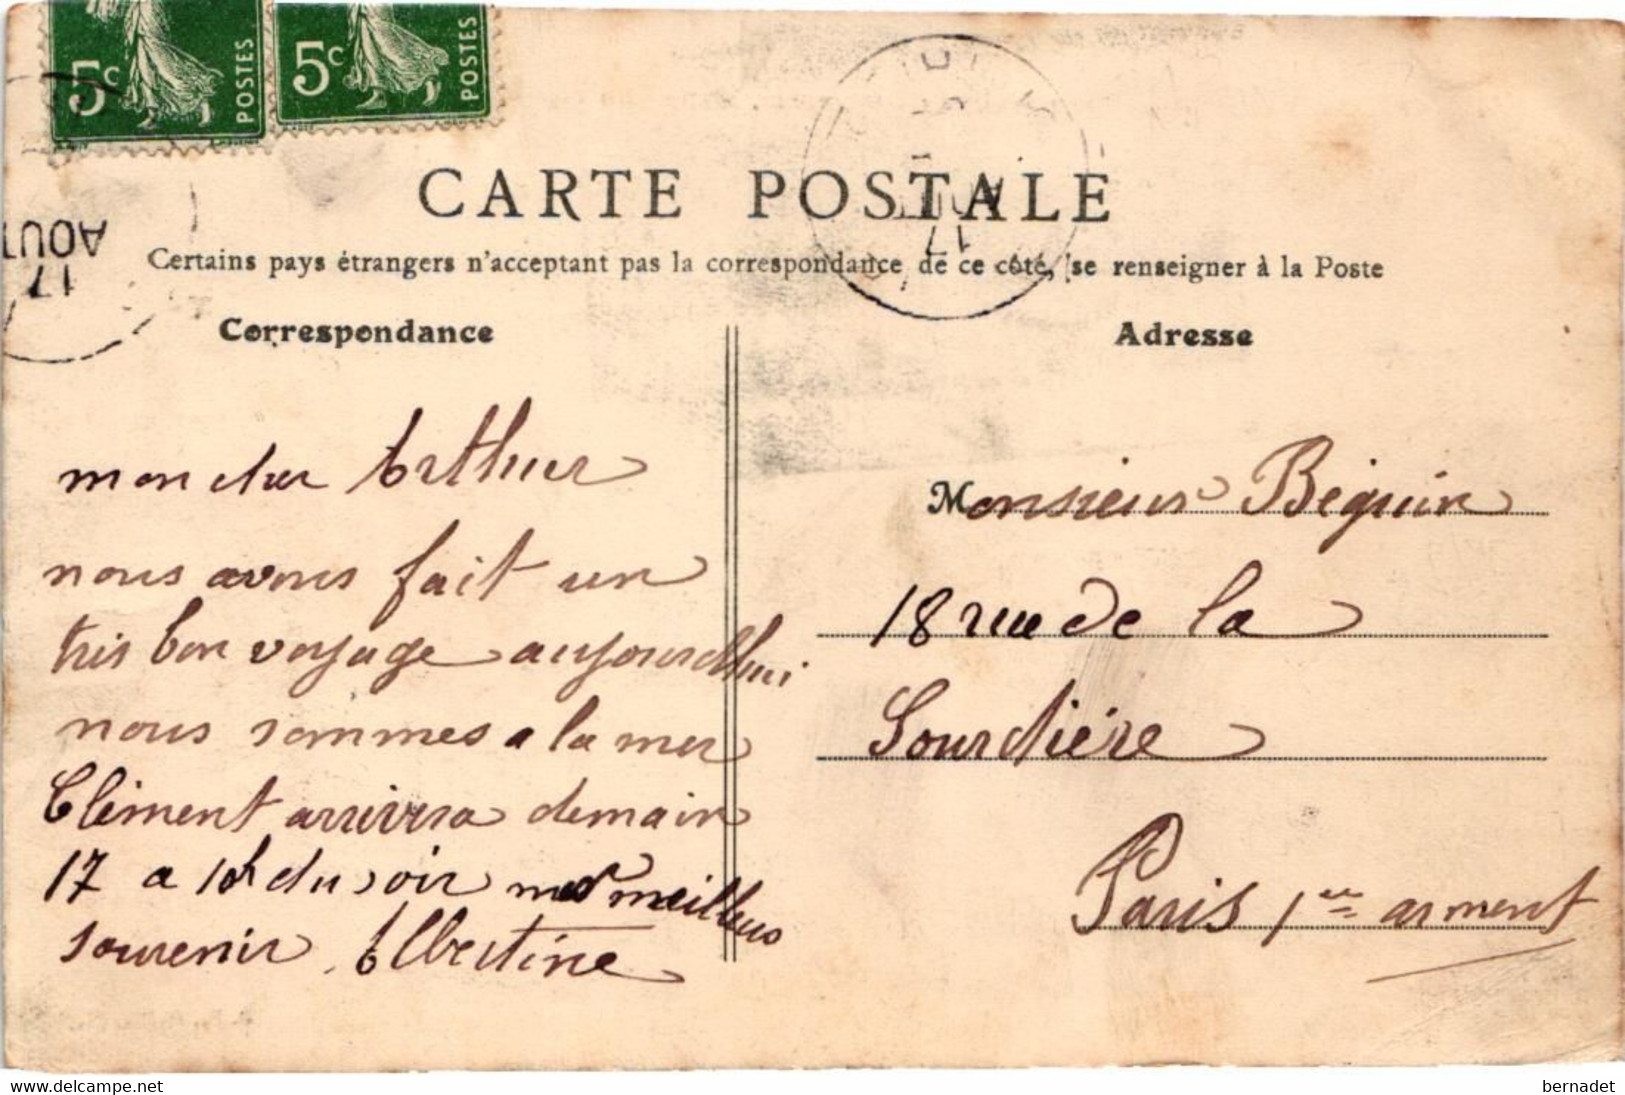 5c POSTES 5c POSTES
CARTE POSTALE
Certains pays étrangers n'acceptant pas la correspondance de ce côté, se renseigner à la Poste
17
AOUT
17
Correspondance
mon cher Arthur
nous avons fait un
tris bon voyage aujourdhui
nous sommes a la mer
Clèment arrivera demain
17 a 10h du soir mes meilleurs
souvenir Albertine
Adresse
Monsieur Béguin
18 rue de la
Sourdière
Paris 1er arment
bernadet